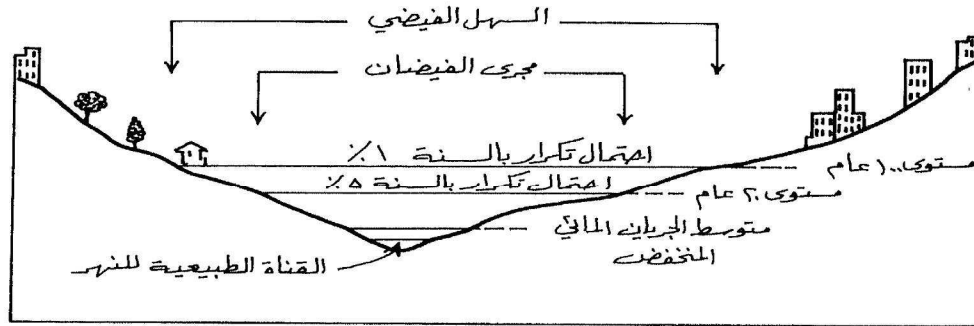 السهل الفيضي
مجرى الفيضان
احتمال تكرار بالسنة ١٪
مستوى ١٠٠ عام
احتمال تكرار بالسنة ٥٪
مستوى ٢٠ عام
متوسط الجريان المائي
المنخفض
القناة الطبيعية للنهر